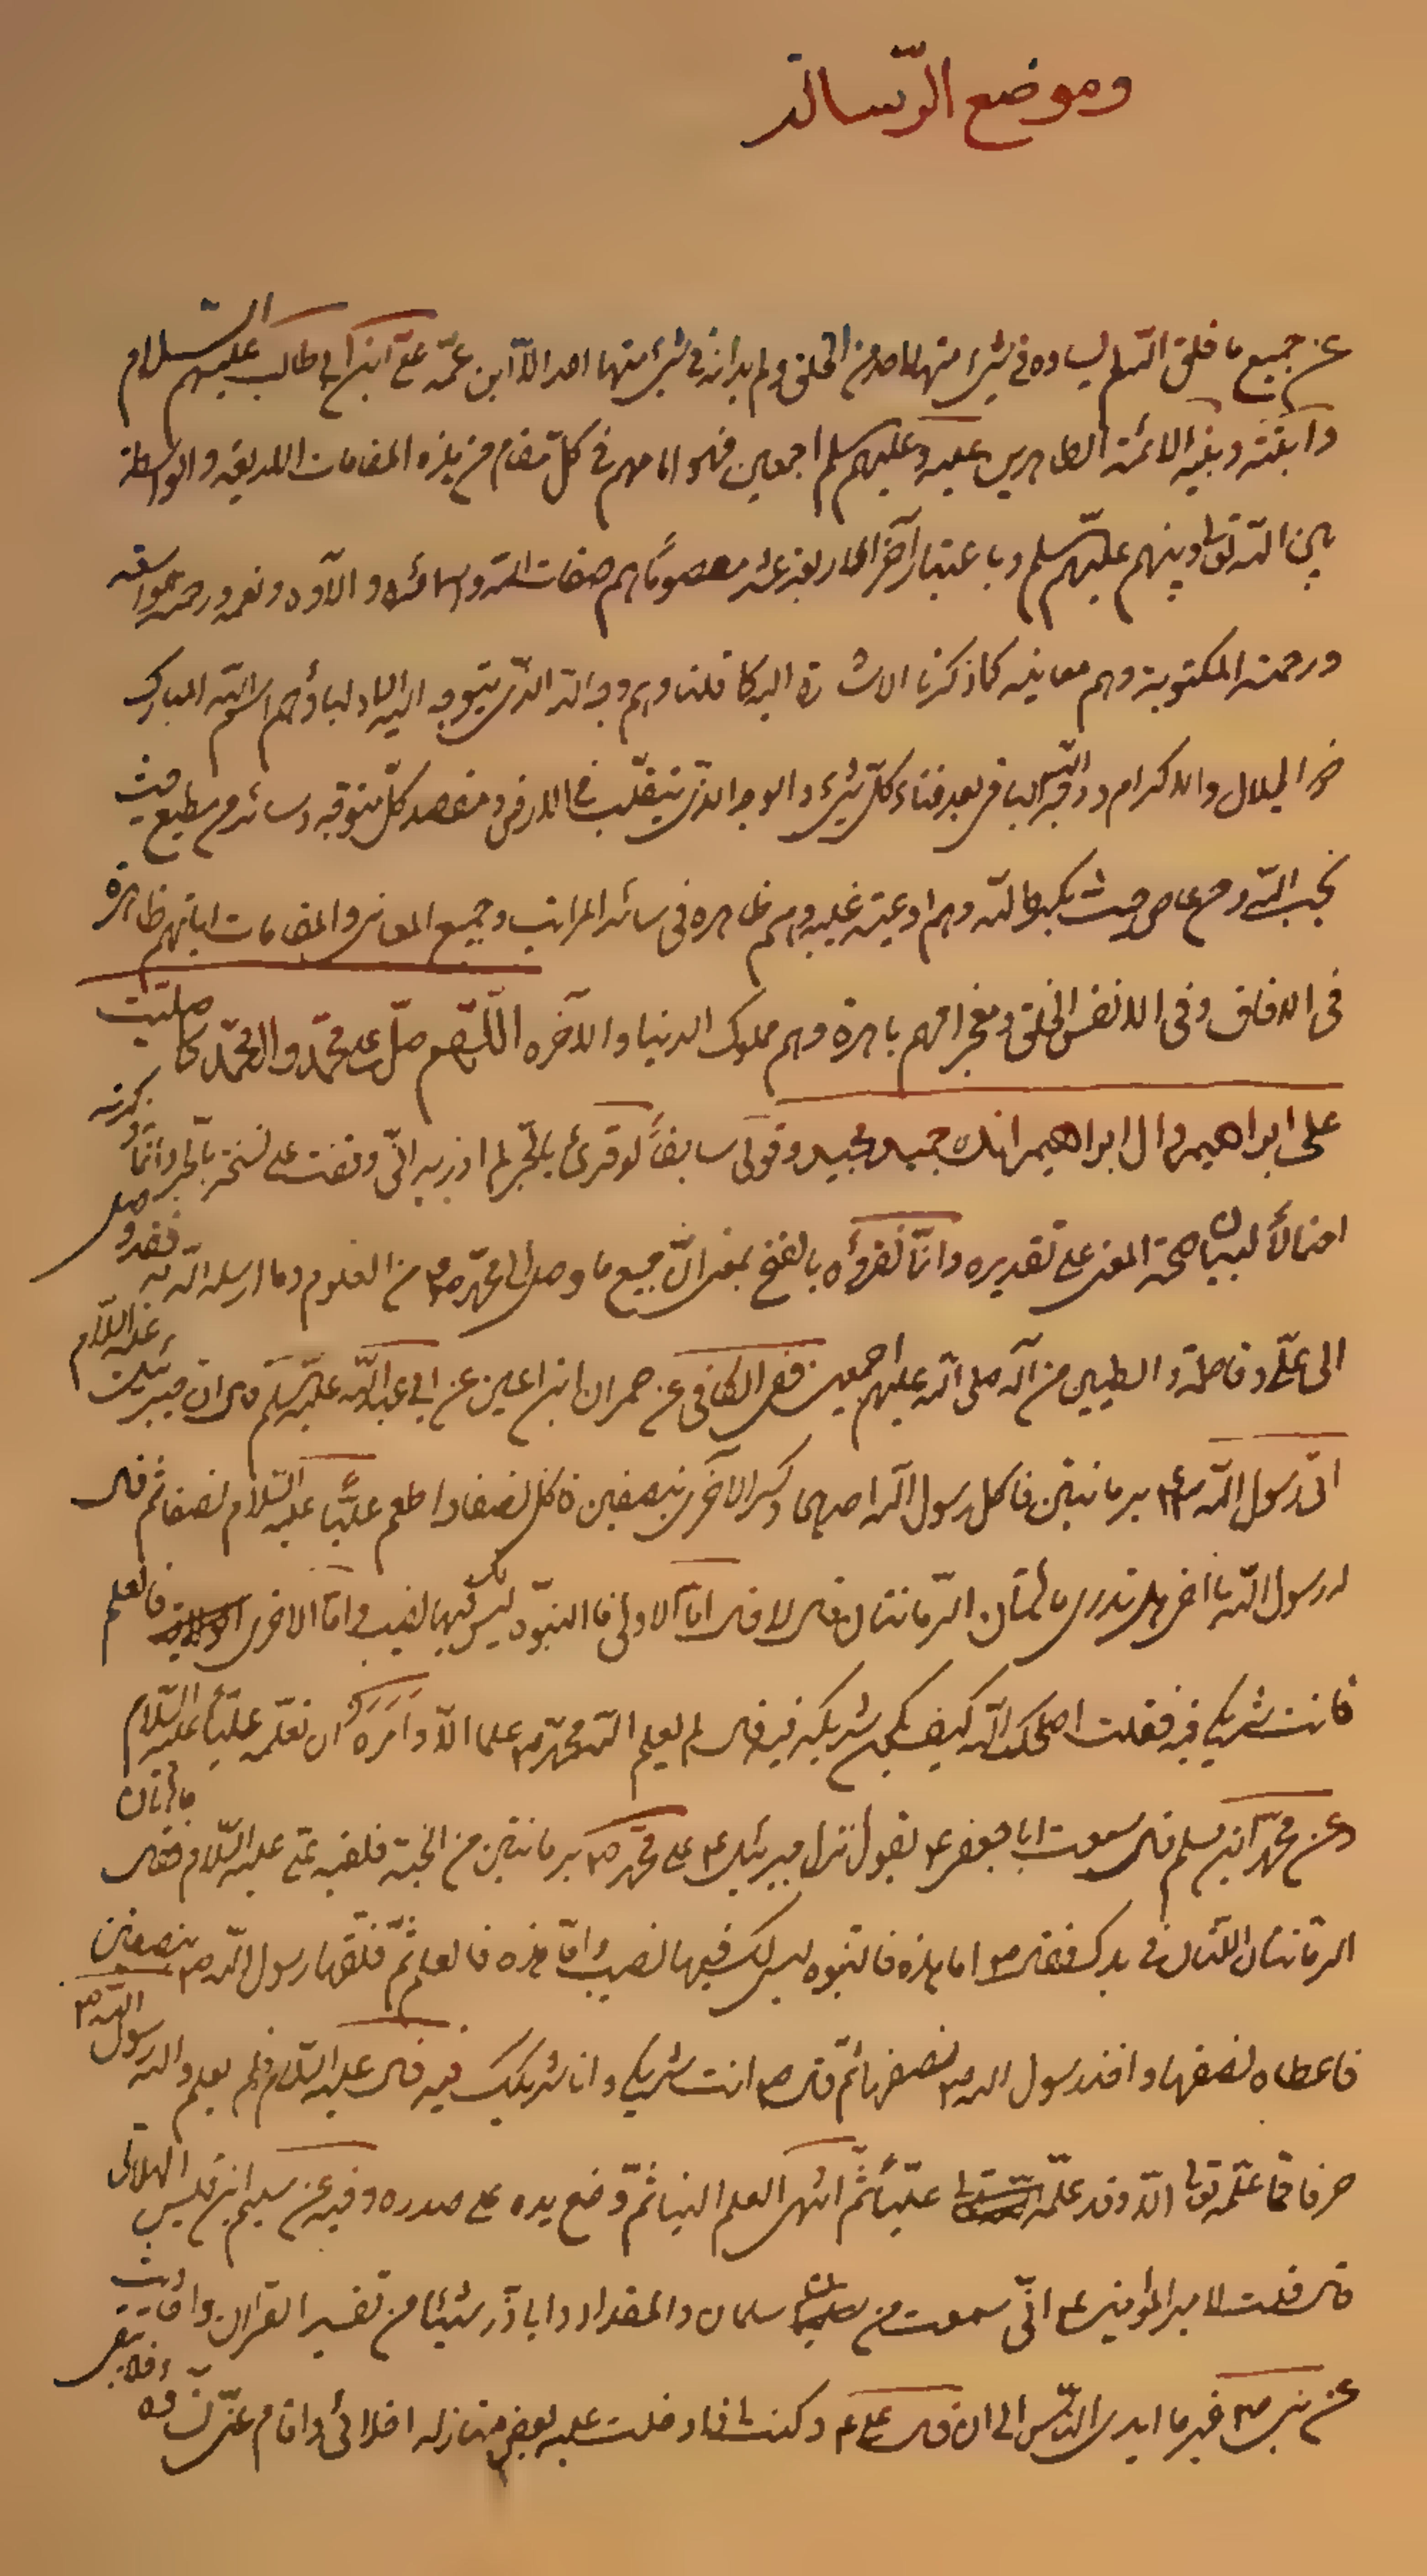 وموضع الرّسالة
عن جميع ما خلق الله لم يساوه في شيء منها احد من الخلق ولم يدانه في شيء منها احد الّا ابن عمّه عليّ ابن ابي طالب عليهم السّلام
وابنته وبقيه الائمّة الطاهرين عليه وعليهم سلم اجمعين فهو امامهم في كلّ مقام من هذه المقامات اللديعه والواسطة
بين الله تعالى وبينهم عليهم سلم وباعتبار آخر الاربعة عشر معصومًا هم صفات الله واسمائه والآؤه ونعمه ورحمته الواسعة
ورحمته المكتوبة وهم معانيه كما ذكرنا الاشارة اليه كما قلنا وهم وجه الله الذي يتوجه اليه الاولياء وهم اسم الله المبارك
ذو الجلال والاكرام ووجه الله الباقي بعد فناء كلّ شيء والوجه الذي يتقلّب في الارض ومقصد كلّ متوجّه وسائر من مطيع حيث
يحب الله ومن عاص حيث يكره الله وهم اوعية غيبه وهم ظاهره في سائر المراتب وجميع المعاني والمقامات اياتهم ظاهرة
في الافاق وفي الانفس الخلق ومعجزاتهم باهرة وهم ملوك الدنيا والآخره اللّهم صلّ على محمّد وال محمّد كما صلّيت
على ابراهيم وال ابراهيم انك حميد مجيد وقولى سابقاً لو قرئ بالجّر لم ارد به انّي وقفت على نسخة بالجر وانّما ذكرته
احتمالاً لبيان صحّة المعنى على تقديره وانّا نقرؤه بالفتح بمعنى انّ جميع ما وصل الى محمّد ص من العلوم وما ارسله الله به فقد وصل
الى عليّ وفاطمة والطيبين من آله صلى الله عليهم اجمعين ففى الكافى عن حمران ابن اعين عن ابي عبدالله عليه السلم قال ان جبرئيل عليه السّلام
اتى رسول الله ص برمانتين فاكل رسول الله احديهما وكسر الاخرى بنصفين فاكل نصفا واطعم عليًّا عليه السّلام نصفا ثم قال
له رسول الله يا اخي هل تدرى ما هاتان الرّمانتان قال لا قال امّا الاولى فالنبوّة ليس لك فيها نصيب وامّا الاخرى فالعلم
فانت شريكي فيه فقلت اصلحك الله كيف يكون شريكه فيه قال لم يعلم الله محمّد ص علما الّا وامره ان يعلّمه عليّاً عليه السّلام
وعن محمّد ابن مسلم قال سمعت ابا جعفر ع يقول نزل جبرئيل ع على محمّد ص برمانتين من الجنة فلقيه علي عليه السّلام فقال ما هاتان
الرمّانتان اللّتان في يدك فقال ص اما هذه فالنبّوه ليس لك فيها نصيب وامّا هذه فالعلم ثمّ فلقها رسول الله ص بنصفين
فاعطاه نصفها واخذ رسول الله ص نصفها ثمّ قال ص انت شريكي وانا شريكك فيه قال عليه السّلام فلم يعلم والله رسول الله ص
حرفا ممّا علّمه تعالى الّا وقد علّمه عليّاً ثمّ انتهى العلم الينا ثمّ وضع يده على صدره وفيه عن سليم ابن قيس الهلالي
قال قلت لامير المؤمنين ع انّي سمعت من سلمان والمقداد وابا ذّر شيئا من تفسير القران واحاديث
عن نبي ص غير ما ايدى النّاس الى ان قال علي ع وكنت اذا دخلت عليه بعض منازله اخلانى واقام عنّي نساءه فلا يبقى